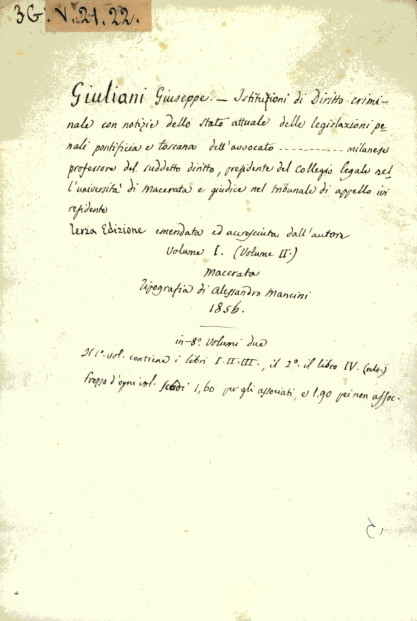 3G. V. 21. 22.
Giuliani Giuseppe. — Istituzioni di Diritto crimi-
nale con notizie dello stato attuale delle legislazioni pe
nali pontificia e toscana dell'avvocato ........... milanese
professore del suddetto diritto, presidente del Collegio legale nel
l'università di Macerata e giudice nel tribunale di appello ivi
residente
Terza Edizione emendata ed accresciuta dall'autore
Volume I. (Volume II.)
Macerata
Tipografia di Alessandro Mancini
1856.
in-8º. Volumi due
Il 1º. vol. contiene i libri I. II. III., il 2º. il libro IV.
Prezzo d'ogni vol. Scudi 1,60 per gli associati, e 1,90 pei non assoc.